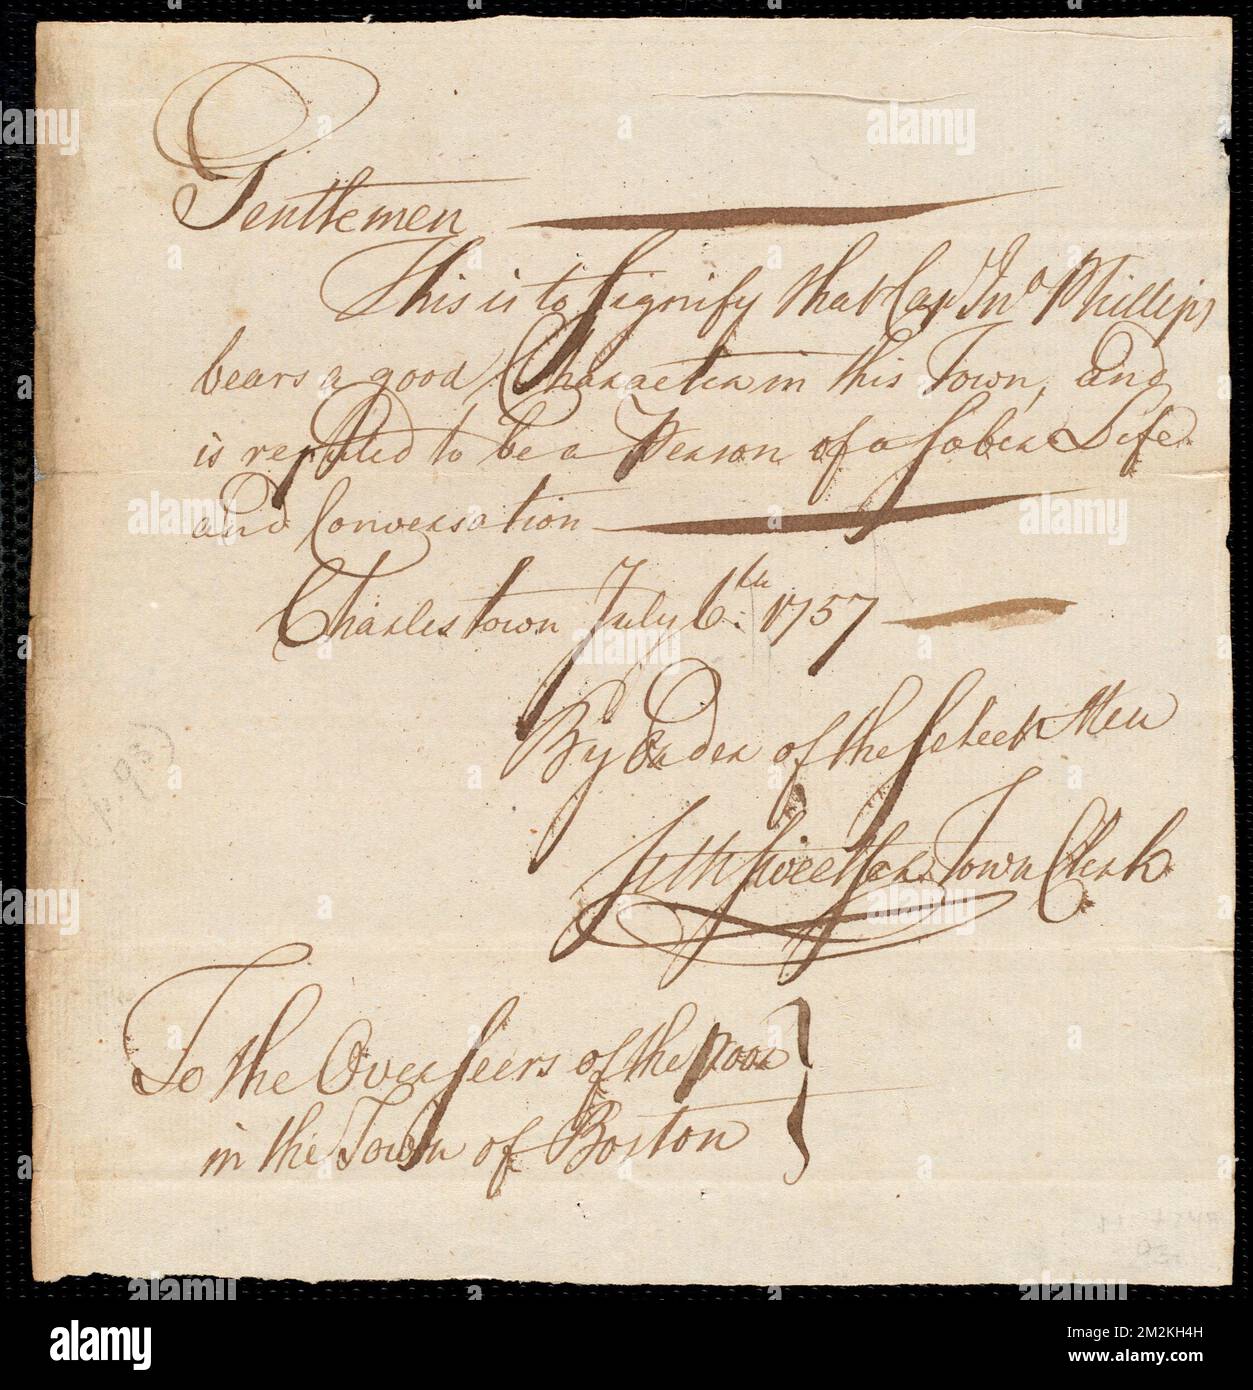 Gentlemen
This is to Signify that Cap.t Jn.o Phillips
bears a good Character in this Town, and
is reputed to be a Person of a Sober Life
and Conversation
Charlestown July 6.th 1757
By Order of the Select Men
Seth Sweetser Town Clerk
To the Overseers of the Poor
in the Town of Boston
p. 93)
alamy
Image ID: M2MKH4H
www.alamy.com